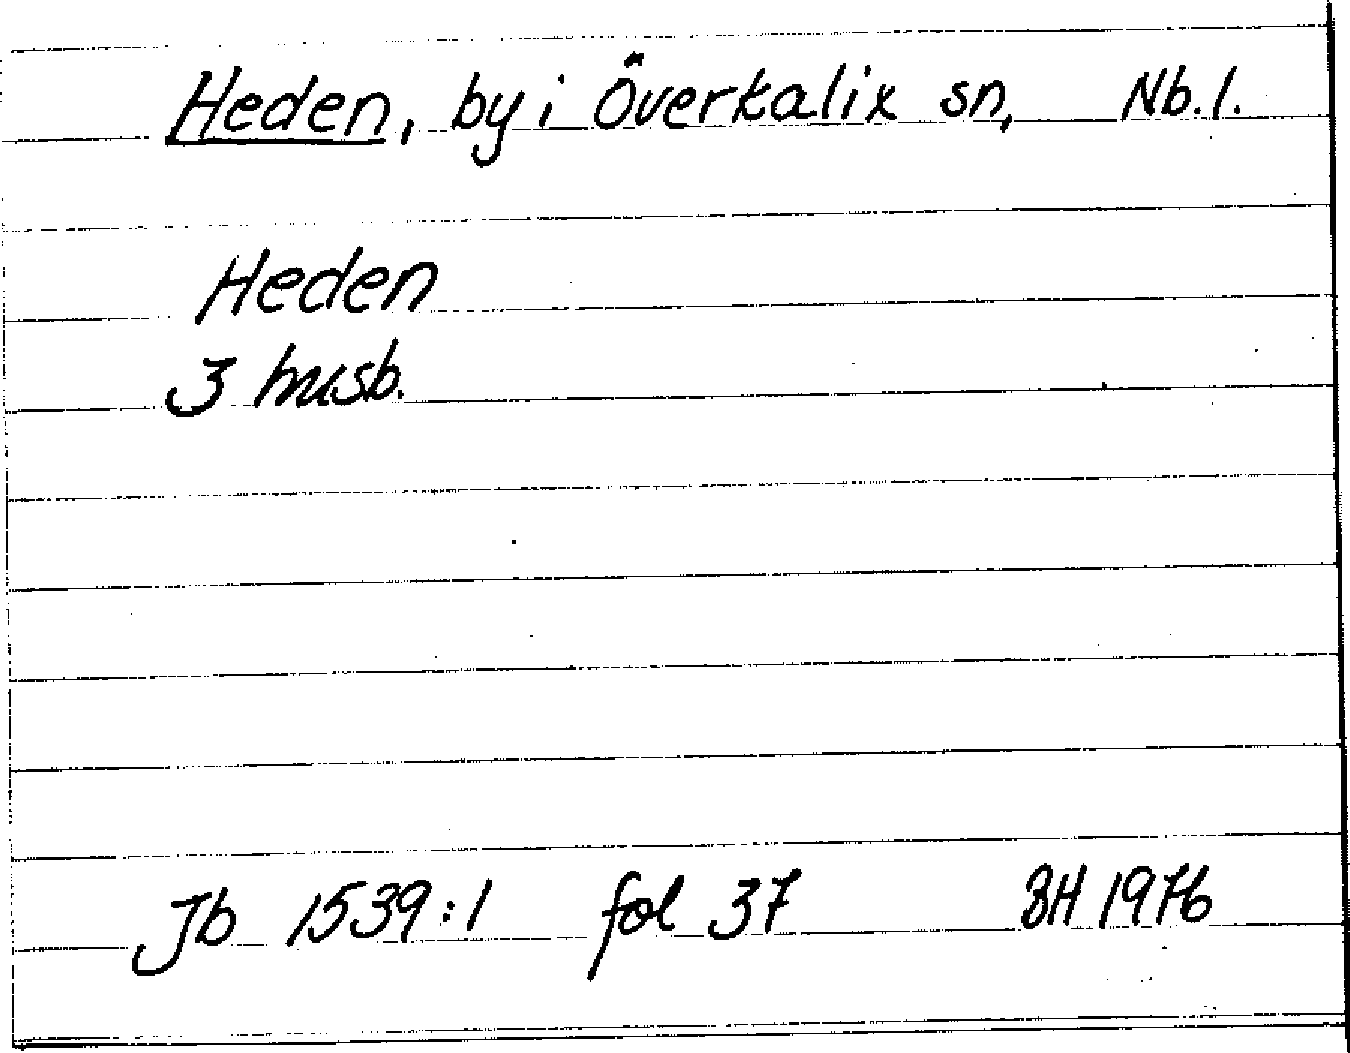 Heden, by i Överkalix sn, Nb.l.
Heden
3 husb.
Jb 1539:1 fol 37 BH 1976